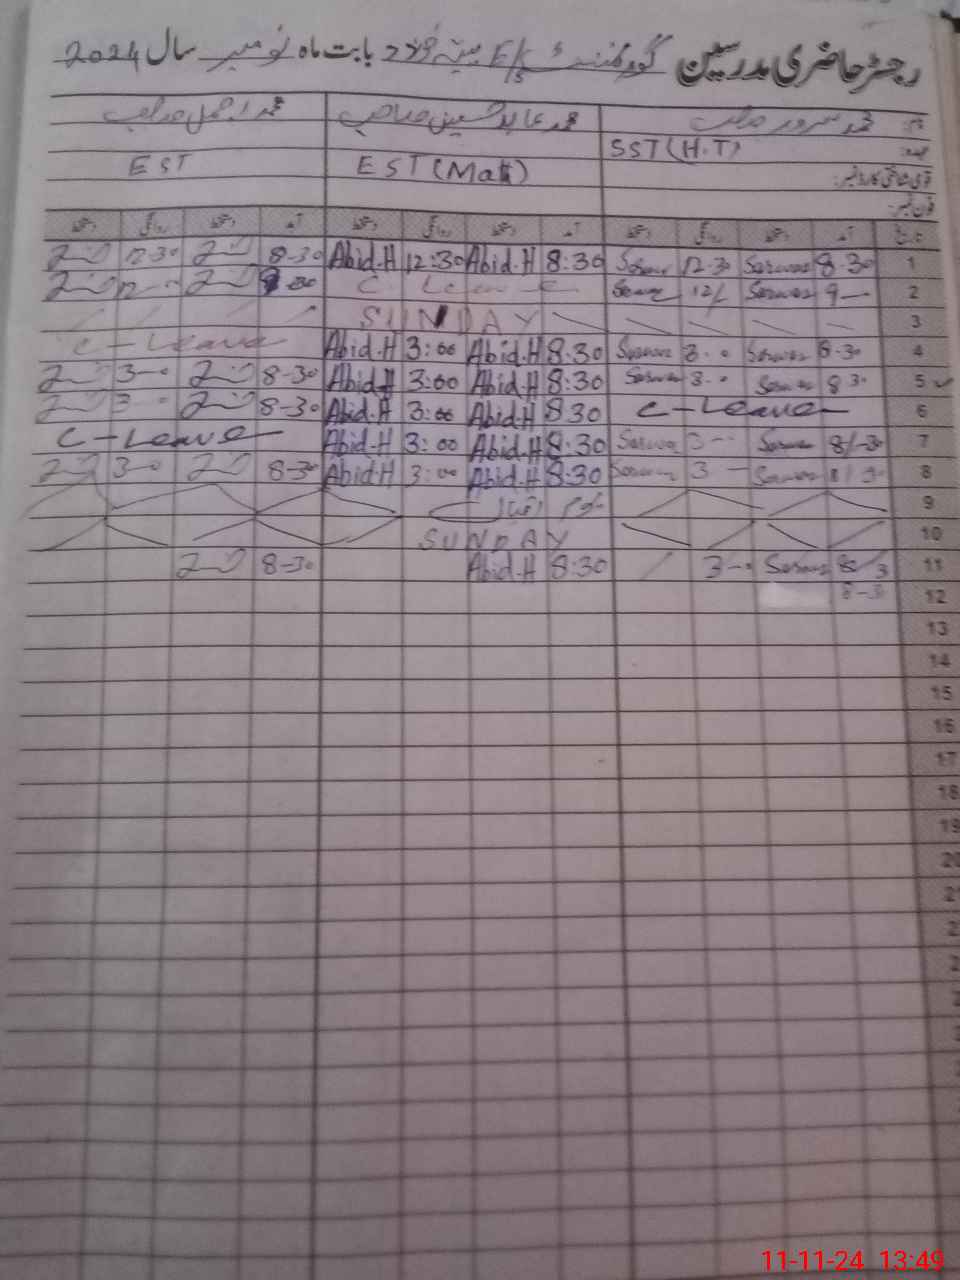 رجسٹر حاضری مدرسین گورنمنٹ E/S بابت ماہ نومبر سال 2024
نام: محمد سرور صاحب محمد عابد حسین صاحب محمد اجمل صاحب
عہدہ: SST (H.T) EST (Math) EST
قومی شناختی کارڈ نمبر:
فون نمبر:
تاریخ آمد دستخط روانگی دستخط آمد دستخط روانگی دستخط آمد دستخط روانگی دستخط
1 8-30 Sarwar 12-30 Sarwar 8:30 Abid.H 12:30 Abid.H 8-30 12-30
2 9 Sarwar 12/ Sarwar C Leave
3 SUNDAY
4 8-30 Sarwar 3-0 Sarwar 8:30 Abid.H 3:00 Abid.H C-Leave
5 8 30 Sarwar 3-0 Sarwar 8:30 Abid.H 3:00 Abid.H 8-30 3-0
6 C-Leave 8:30 Abid.H 3:00 Abid.H 8-30 3-0
7 8/-30 Sarwar 3-- Sarwar 8:30 Abid.H 3:00 Abid.H C-Leave
8 Sarwar 3 Sarwar 8:30 Abid.H 3:00 Abid.H 8-30 3-0
9 یوم اقبال
10 SUNDAY
11 Sarwar 3-- 8:30 Abid.H 8-30
12 8-30
13
14
15
16
17
18
19
20
11-11-24 13:49